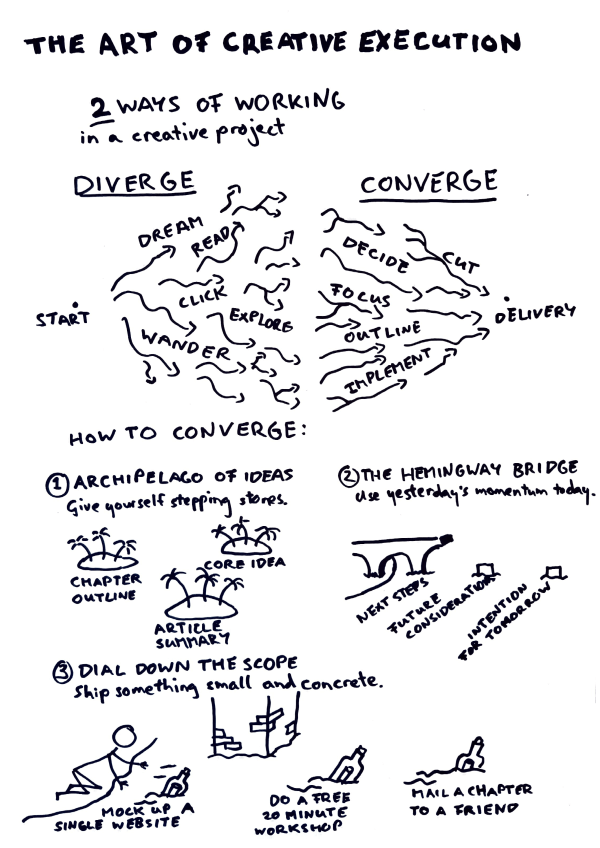 THE ART OF CREATIVE EXECUTION
2 WAYS OF WORKING
in a creative project
DIVERGE
CONVERGE
START
DREAM
READ
CLICK
EXPLORE
WANDER
DECIDE
CUT
FOCUS
OUTLINE
IMPLEMENT
DELIVERY
HOW TO CONVERGE:
1 ARCHIPELAGO OF IDEAS
Give yourself stepping stones.
CHAPTER
OUTLINE
CORE IDEA
ARTICLE
SUMMARY
2 THE HEMINGWAY BRIDGE
Use yesterday's momentum today.
NEXT STEPS
FUTURE
CONSIDERATION
INTENTION
FOR TOMORROW
3 DIAL DOWN THE SCOPE
Ship something small and concrete.
MOCK UP A
SINGLE WEBSITE
DO A FREE
20 MINUTE
WORKSHOP
MAIL A CHAPTER
TO A FRIEND